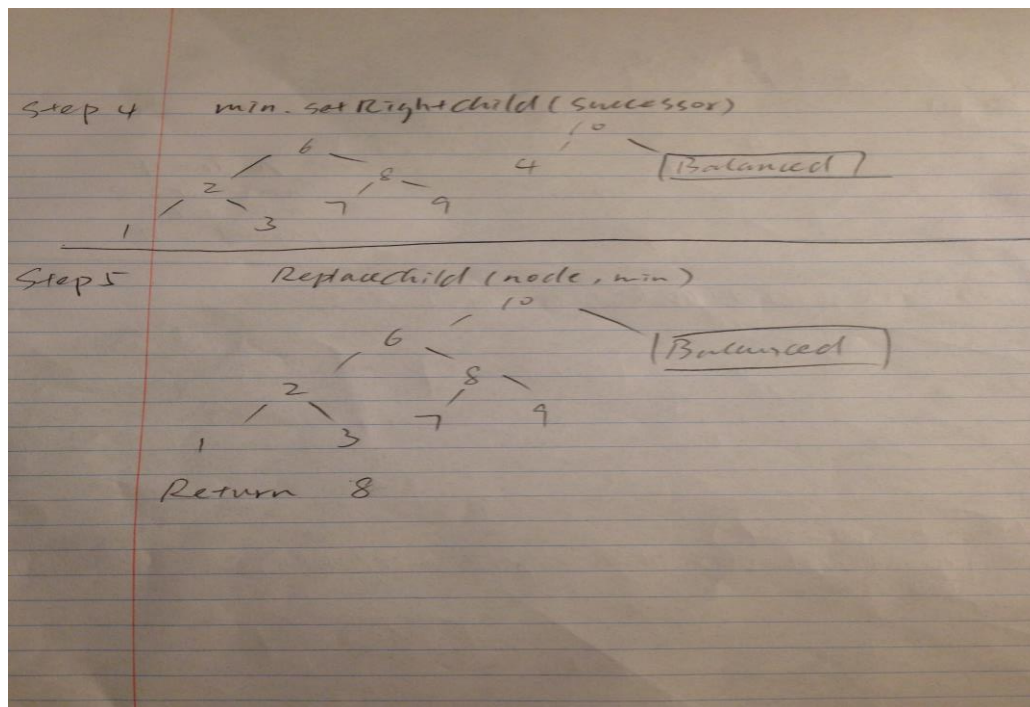 Step 4 min.setRightChild(Successor)
10
6
4 Balanced
2 8
1 3 7 9
Step 5 ReplaceChild(node, min)
10
6 Balanced
2 8
1 3 7 9
Return 8